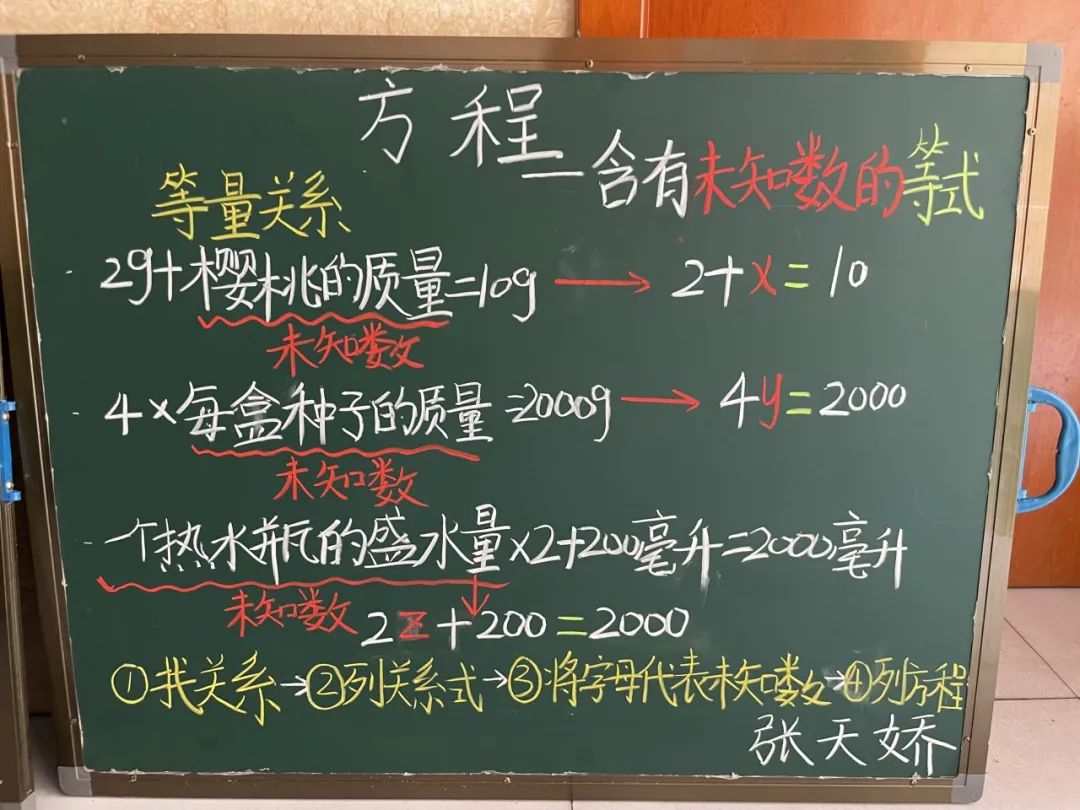 方程—含有未知数的等式
等量关系
2g+樱桃的质量=10g → 2+x=10
未知数
4×每盒种子的质量=2000g → 4y=2000
未知数
一个热水瓶的盛水量×2+200毫升=2000毫升
未知数 2z+200=2000
①找关系→②列关系式→③将字母代表未知数→④列方程
张天娇